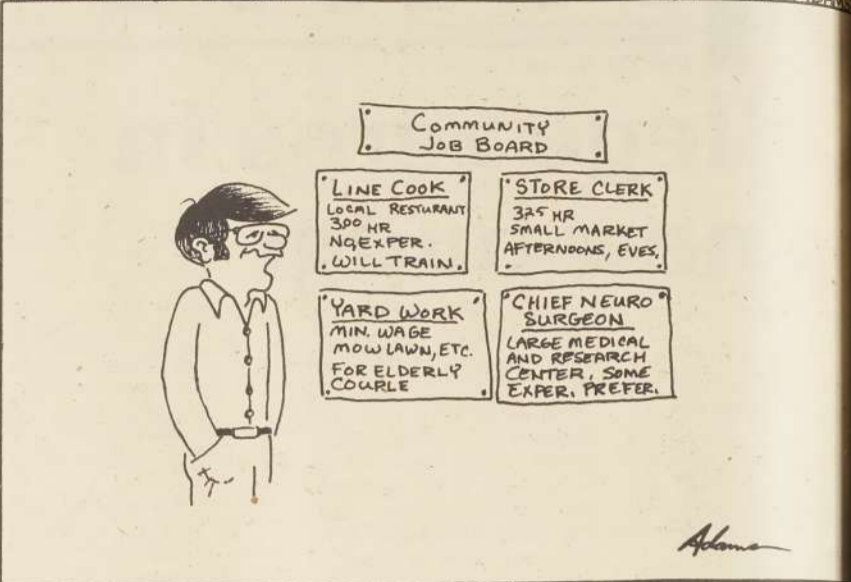 COMMUNITY
JOB BOARD
LINE COOK
LOCAL RESTURANT
3.00 HR
NO EXPER.
WILL TRAIN.
STORE CLERK
325 HR
SMALL MARKET
AFTERNOONS, EVES.
YARD WORK
MIN. WAGE
MOW LAWN, ETC.
FOR ELDERLY
COUPLE
CHIEF NEURO
SURGEON
LARGE MEDICAL
AND RESEARCH
CENTER, SOME
EXPER. PREFER.
Adams